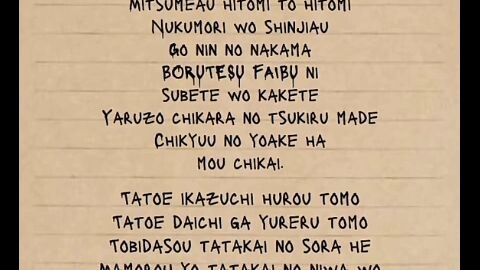 MITSUMEAU HITOMI TO HITOMI
NUKUMORI WO SHINJIAU
GO NIN NO NAKAMA
BORUTESU FAIBU NI
SUBETE WO KAKETE
YARUZO CHIKARA NO TSUKIRU MADE
CHIKYUU NO YOAKE HA
MOU CHIKAI.
TATOE IKAZUCHI HUROU TOMO
TATOE DAICHI GA YURERU TOMO
TOBIDASOU TATAKAI NO SORA HE
MAMOROU YO TATAKAI NO NIWA WO